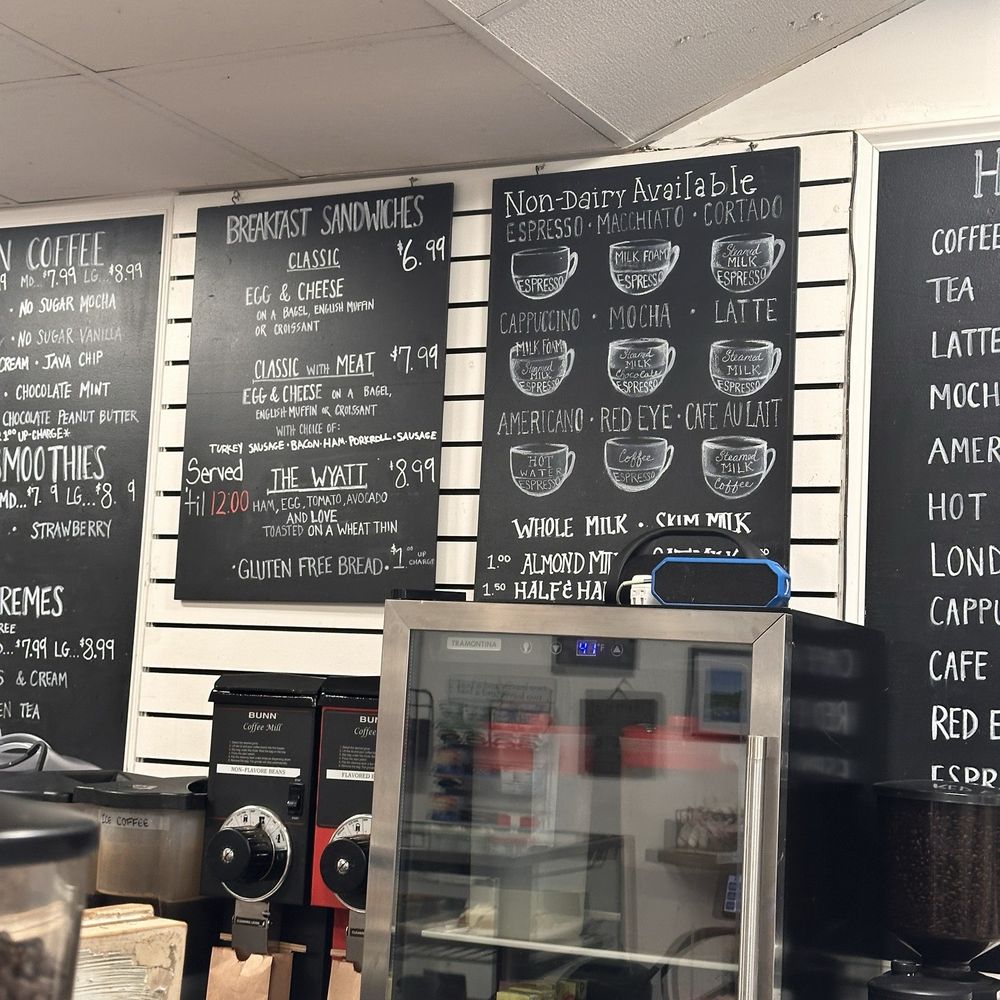 N COFFEE
9 MD...$7.99 LG...$8.99
· NO SUGAR MOCHA
· NO SUGAR VANILLA
CREAM · JAVA CHIP
· CHOCOLATE MINT
CHOCOLATE PEANUT BUTTER
UP-CHARGE*
SMOOTHIES
MD...$7. 9 LG...$8. 9
· STRAWBERRY
REMES
REE
...$7.99 LG...$8.99
S & CREAM
EN TEA
BREAKFAST SANDWICHES
CLASSIC $6.99
EGG & CHEESE
ON A BAGEL, ENGLISH MUFFIN
OR CROISSANT
CLASSIC WITH MEAT $7.99
EGG & CHEESE ON A BAGEL,
ENGLISH MUFFIN OR CROISSANT
WITH CHOICE OF:
TURKEY SAUSAGE · BACON · HAM · PORKROLL · SAUSAGE
Served
'til 12:00
THE WYATT $8.99
HAM, EGG, TOMATO, AVOCADO
AND LOVE
TOASTED ON A WHEAT THIN
· GLUTEN FREE BREAD · $1.00 UP CHARGE
Non-Dairy Available
ESPRESSO · MACCHIATO · CORTADO
ESPRESSO
MILK FOAM
ESPRESSO
Steamed
MILK
ESPRESSO
CAPPUCCINO · MOCHA · LATTE
MILK FOAM
Steamed
MILK
ESPRESSO
Steamed
MILK
Chocolate
ESPRESSO
Steamed
MILK
ESPRESSO
AMERICANO · RED EYE · CAFE AU LAIT
HOT
WATER
ESPRESSO
Coffee
ESPRESSO
Steamed
MILK
Coffee
WHOLE MILK · SKIM MILK
1.00 ALMOND MI
1.50 HALF & HA
H
COFFEE
TEA
LATTE
MOCH
AMER
HOT
LOND
CAPPU
CAFE
RED E
ESPR
TRAMONTINA
41°F
BUNN
Coffee Mill
NON-FLAVORE BEANS
BUN
Coffee
FLAVORED B
ICE COFFEE